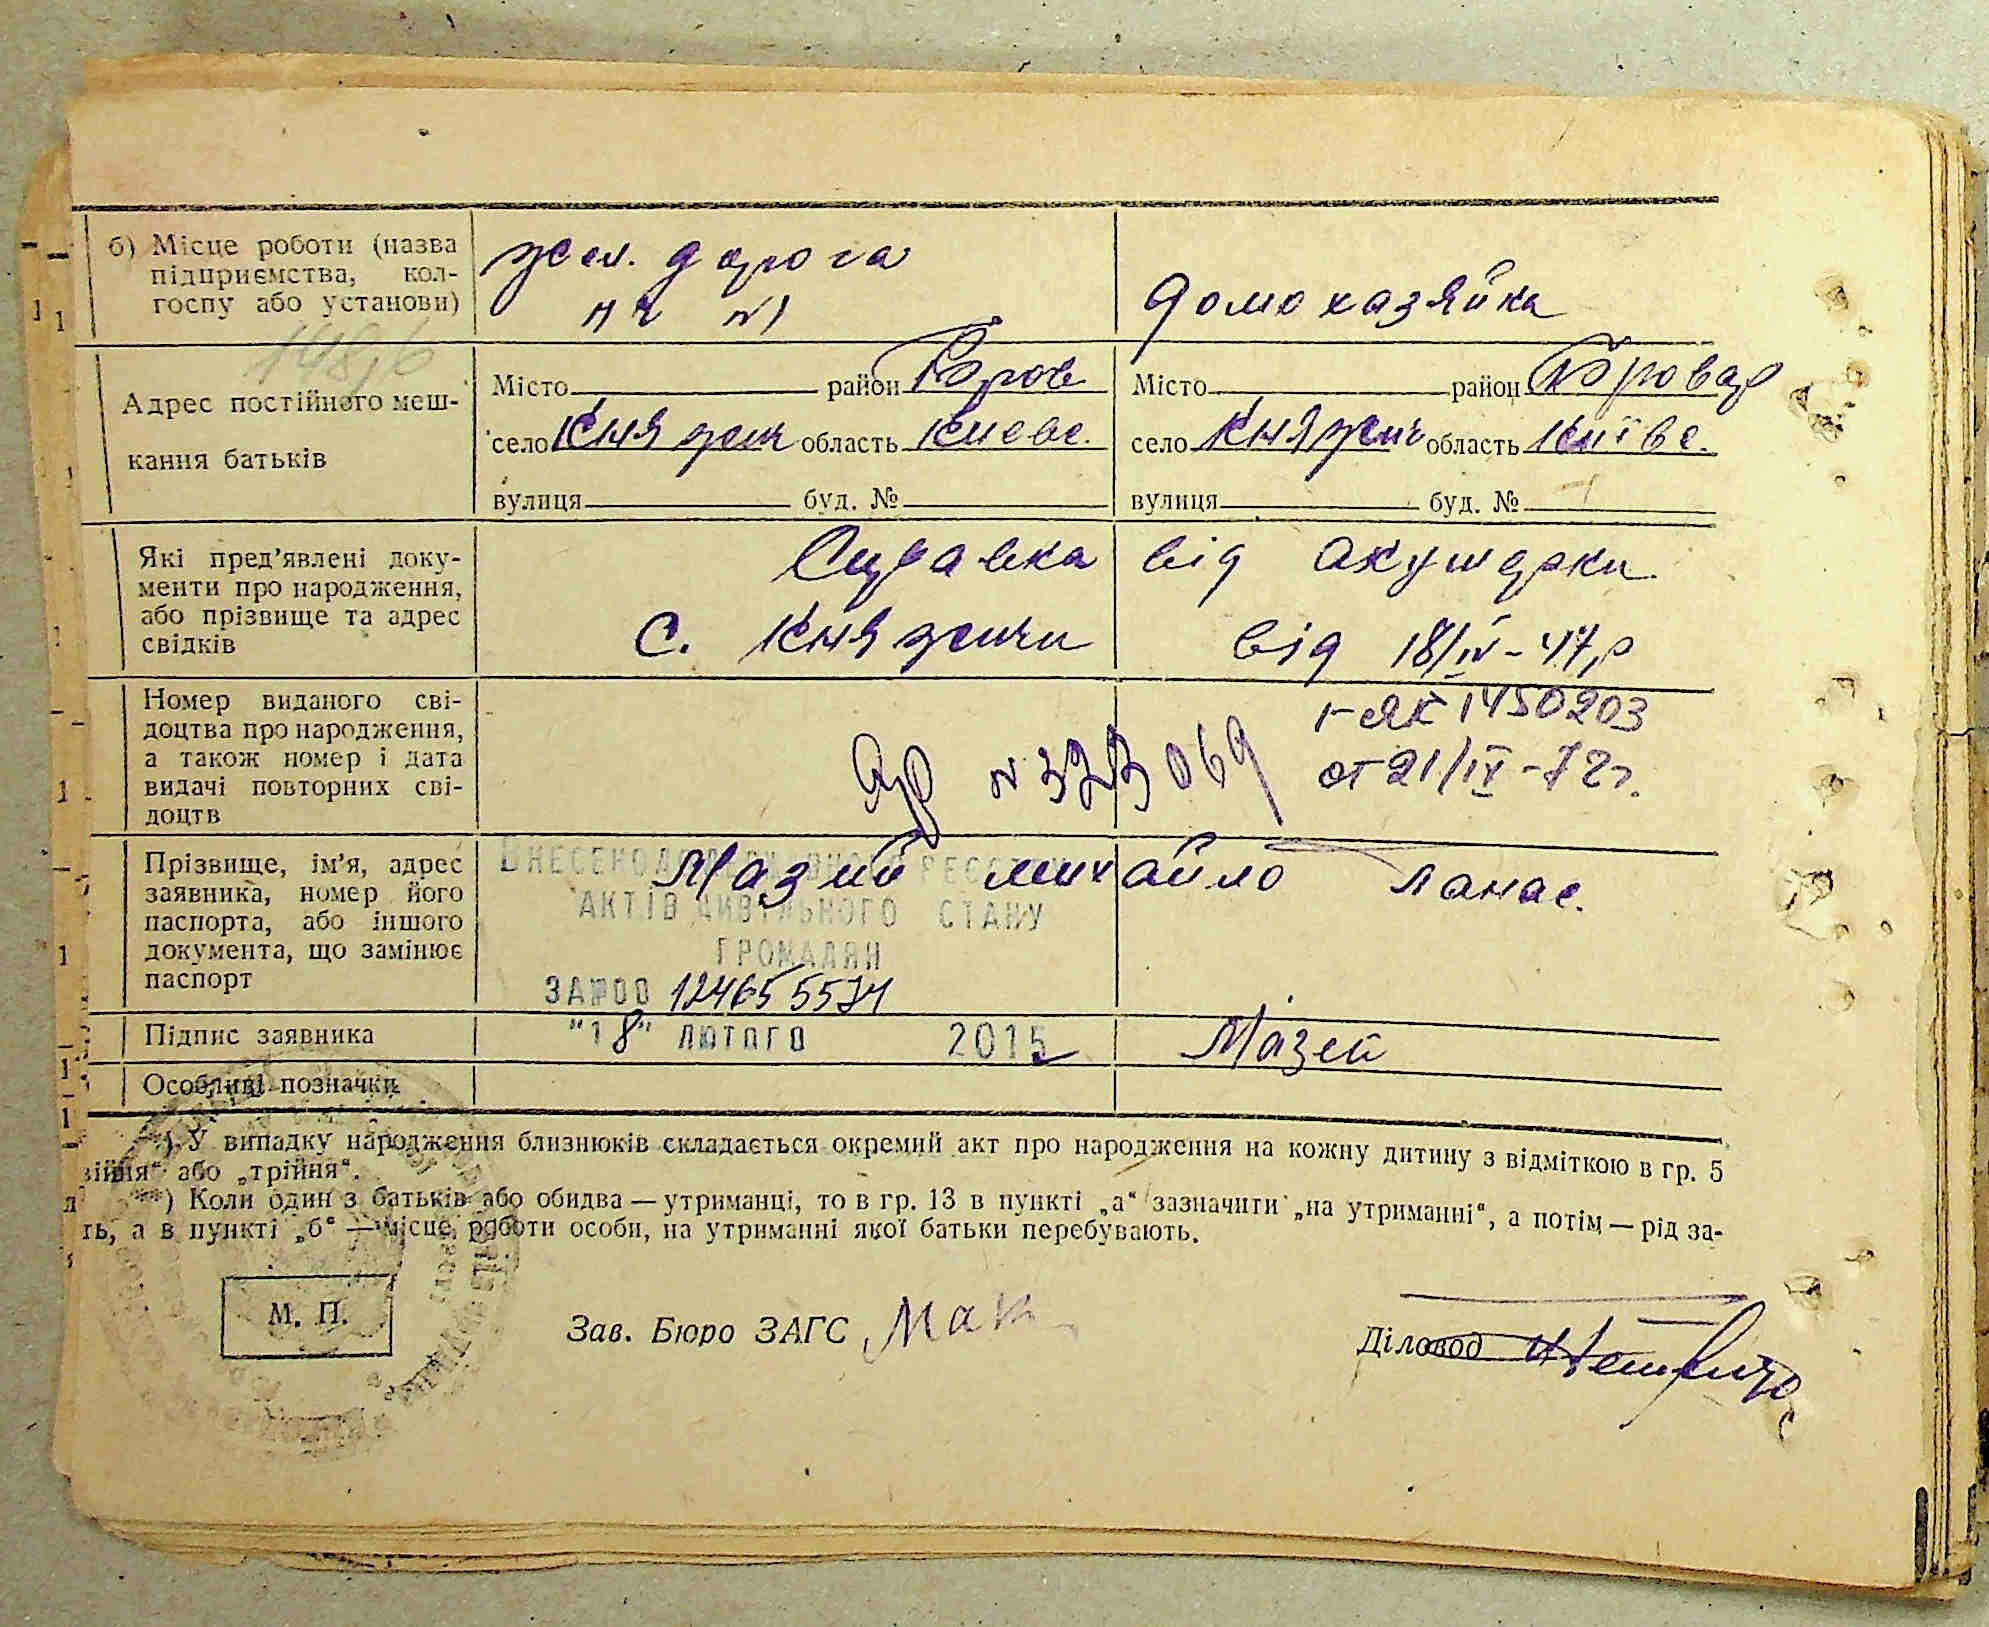 б) Місце роботи (назва
підприємства, кол-
госпу або установи)
жел. дорога
ПЧ №1
домохазяйка
148/б
Адрес постійного меш-
кання батьків
Місто район Бров
село Княжич область Києвс.
вулиця буд. №
Місто район Бровар
село Княжич область Київс.
вулиця буд. №
Які пред'явлені доку-
менти про народження,
або прізвище та адрес
свідків
Справка від акушерки
с. Княжичи від 18/IV-47р
Номер виданого сві-
доцтва про народження,
а також номер і дата
видачі повторних сві-
доцтв
№ 323069
I-ЯК 1450203
от 21/IV-72г.
Прізвище, ім'я, адрес
заявника, номер його
паспорта, або іншого
документа, що замінює
паспорт
Мазий Михайло Панас.
ВНЕСЕНО ДО ДЕРЖАВНОГО РЕЄСТРУ
АКТІВ ЦИВІЛЬНОГО СТАНУ
ГРОМАДЯН
ЗА №00 124655574
"18" ЛЮТОГО 2015
Підпис заявника
Мазей
Особливі позначки
*) У випадку народження близнюків складається окремий акт про народження на кожну дитину з відміткою в гр. 5
війня" або „трійня".
**) Коли один з батьків або обидва — утриманці, то в гр. 13 в пункті „а" зазначити „на утриманні", а потім — рід за-
ть, а в пункті „б" — місце роботи особи, на утриманні якої батьки перебувають.
М. П.
Зав. Бюро ЗАГС
Діловод